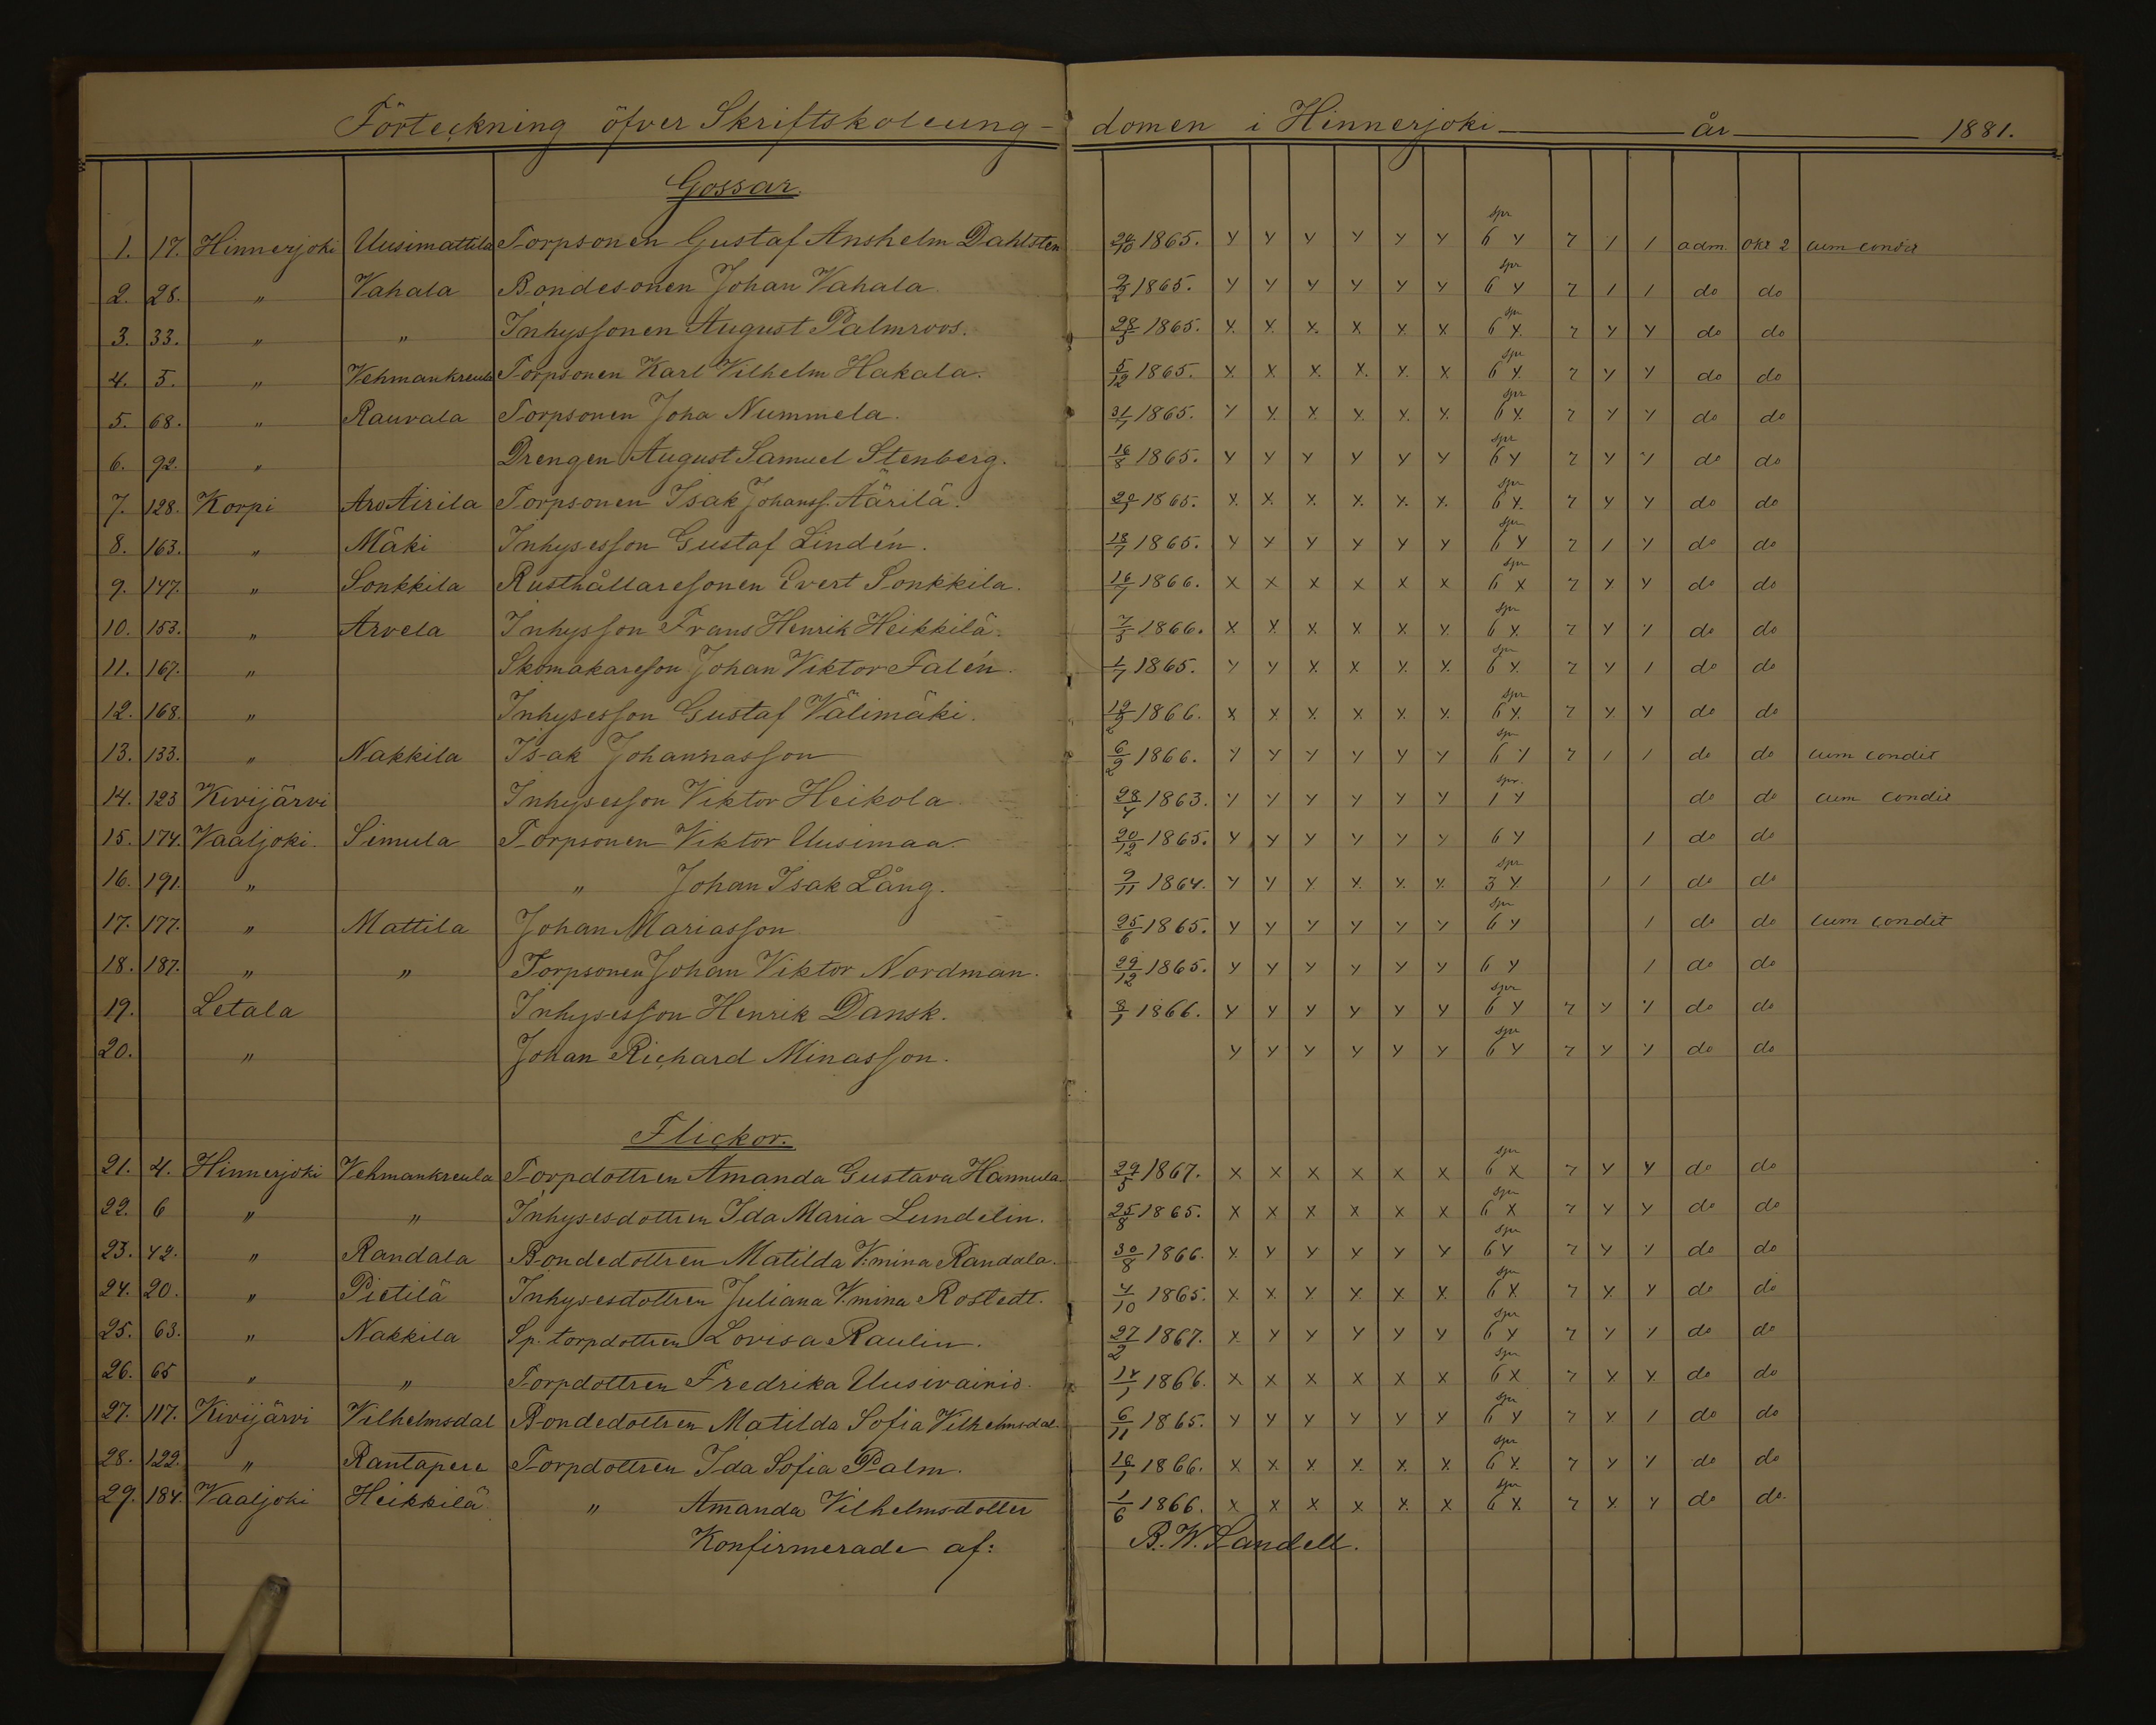 Förteckning öfver Skriftskoleung- domen i Hinnerjoki år 1881.
Gossar.
1. 17. Hinnerjoki Uusimattila Torpsonen Gustaf Anshelm Dahlsten 1865. y y y y y y spr 6 y 7 / / adm. okt 2 cum condit
2. 28. " Vahala Bondesonen Johan Vahala 1865. y y y y y y spr 6 y 7 / / do do
3. 33. " " Inhyssonen August Palmroos. 28/5 1865. x x x x x x spr 6 x 7 y y do do
4. 5. " Vehmankreula Torpsonen Karl Vilhelm Hakala. 5/12 1865. x x x x x x spr 6 x 7 y y do do
5. 68. " Rauvala Torpsonen Joha Nummela. 31/7 1865. y x x x x x spr 6 x 7 y y do do
6. 92. " Drengen August Samuel Stenberg. 16/8 1865. y y y y y y spr 6 y 7 y y do do
7. 128. Korpi Aro Airila Torpsonen Isak Johanss. Äärilä. 1865. x x x x x x spr 6 x 7 y y do do
8. 163. " Mäki Inhysesson Gustaf Lindén. 18/7 1865. y y y y y y spr 6 y 7 / y do do
9. 147. " Sonkkila Rusthållaresonen Evert Sonkkila. 16/7 1866. x x x x x x spr 6 x 7 y y do do
10. 153. " Arvela Inhysson Frans Henrik Heikkilä. 7/5 1866. x x x x x x spr 6 x 7 y y do do
11. 167. " Skomakareson Johan Viktor Falén. 1/7 1865. y y x x x x spr 6 x 7 y / do do
12. 168. " Inhysesson Gustaf Välimäki. 1866. x x x x x x spr 6 x 7 x y do do
13. 133. " Nakkila Isak Johannasson 6/2 1866. y y y y y y spr 6 y 7 / / do do cum condit
14. 123 Kivijärvi Inhysesson Viktor Heikola 28/4 1863. y y y y y y spr. 1 y do do cum condit
15. 174. Vaaljoki. Simula Torpsonen Viktor Uusimaa 20/12 1865. y y y y y y 6 y / do do
16. 191. " " Johan Isak Lång. 9/11 1864. y y x x x x spr 3 y / / do do
17. 177. " Mattila Johan Mariasson 25/6 1865. y y y y y y spr 6 y / do do cum condit
18. 187. " " Torpsonen Johan Viktor Nordman. 29/12 1865. y y y y y y 6 y / do do
19. Letala Inhysesson Henrik Dansk. 8/1 1866. y y y y y y spr 6 y 7 y y do do
20. " Johan Richard Minasson. y y y y y y spr 6 y 7 y y do do
Flickor.
21. 4. Hinnerjoki Vehmankreula Torpdottren Amanda Gustava Hannula. 29/5 1867. x x x x x x spr 6 x 7 y y do do
22. 6 " " Inhysesdottren Ida Maria Lundelin. 25/8 1865. x x x x x x spr 6 x 7 y y do do
23. 42. " Randala Bondedottren Matilda V:mina Randala. 30/8 1866. x y y y y y spr 6 y 7 y y do do
24. 20. " Pietilä Inhysesdottren Juliana V:mina Rostedt. 4/10 1865. x x x x x x spr 6 x 7 x y do do
25. 63. " Nakkila Sp. torpdottren Lovisa Raulin. 27/2 1867. x y y y y y spr 6 y 7 y y do do
26. 65 " " Torpdottren Fredrika Uusivainio. 14/1 1866. x x x x x x spr 6 x 7 x x do do
27. 117. Kivijärvi Vilhelmsdal Bondedottren Matilda Sofia Vilhelmsdal. 6/11 1865. y y y y y y spr 6 y 7 y / do do
28. 122. " Rantapere Torpdottren Ida Sofia Palm. 16/1 1866. x x x x x x spr 6 x 7 y y do do
29. 184. Vaaljoki Heikkilä " Amanda Vilhelmsdotter 1/6 1866. x x x x x x spr 6 x 7 x y do do.
Konfirmerade af: B. W. Landell.